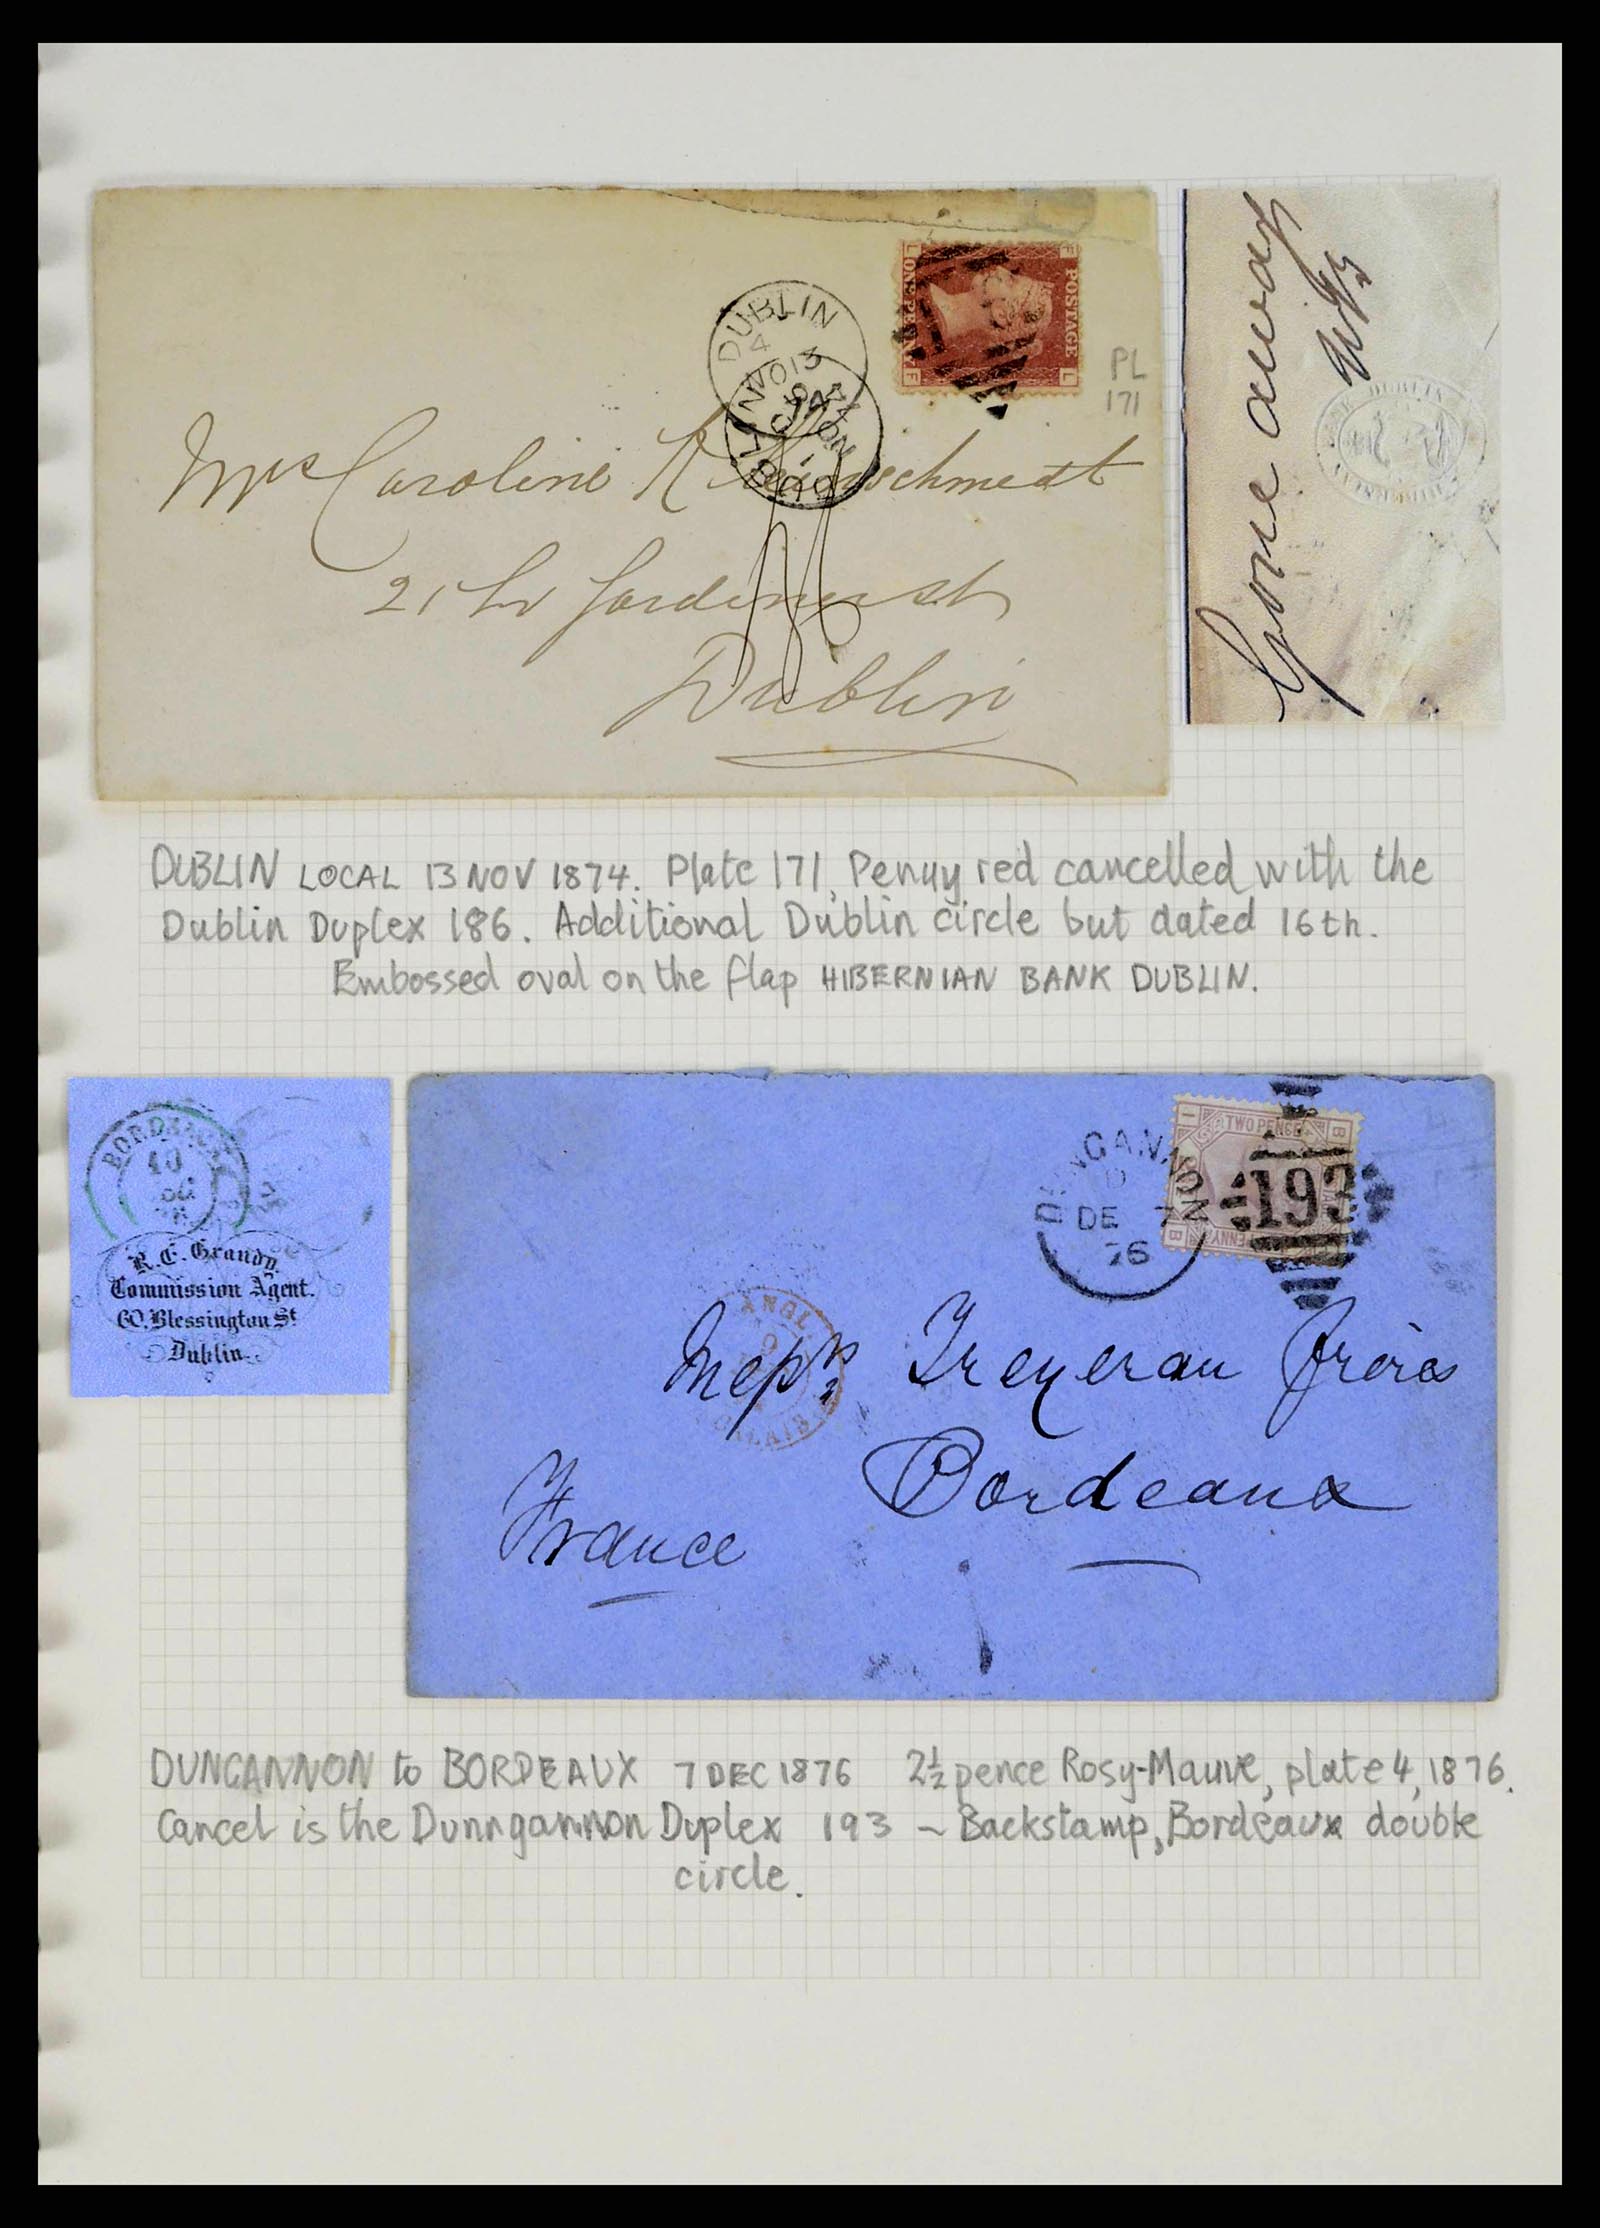 L F
ONE PENNY
POSTAGE
F L
DUBLIN
4
NO 13
74
PL
171
Mrs Caroline R
21 Lr Gardiner st
Dublin
Gone away
DUBLIN LOCAL 13 NOV 1874. Plate 171, Penny red cancelled with the
Dublin Duplex 186. Additional Dublin circle but dated 16th.
Embossed oval on the flap HIBERNIAN BANK DUBLIN.
BORDEAUX
10
R. E. Grandy.
Commission Agent.
60. Blessington St
Dublin.
TWO PENCE
DUNGANNON
D
DE 7
76
193
ANGL.
CALAIS
Treyeran frères
Bordeaux
France
DUNGANNON to BORDEAUX 7 DEC 1876 2½ pence Rosy-Mauve, plate 4, 1876.
Cancel is the Dunngannon Duplex 193 ~ Backstamp, Bordeaux double
circle.